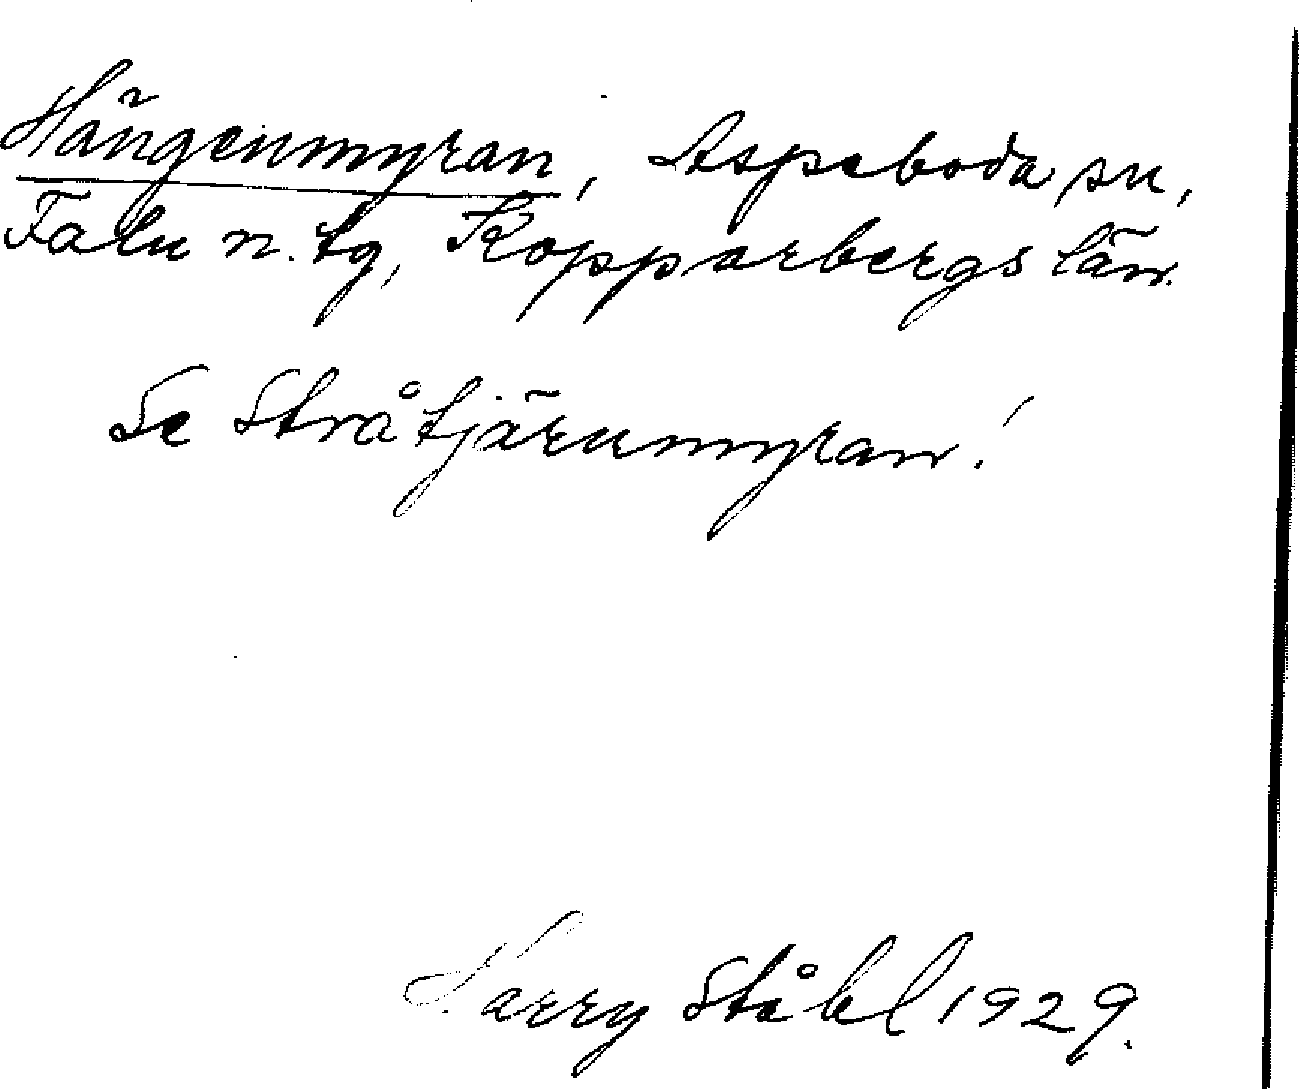 Hängenmyran, Aspeboda sn,
Falu n. tg, Kopparbergs län.
Se Stråtjärnmyran!
Harry Ståhl 1929.